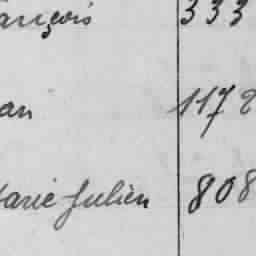 ançois 333
an 1172
arie Julien 808